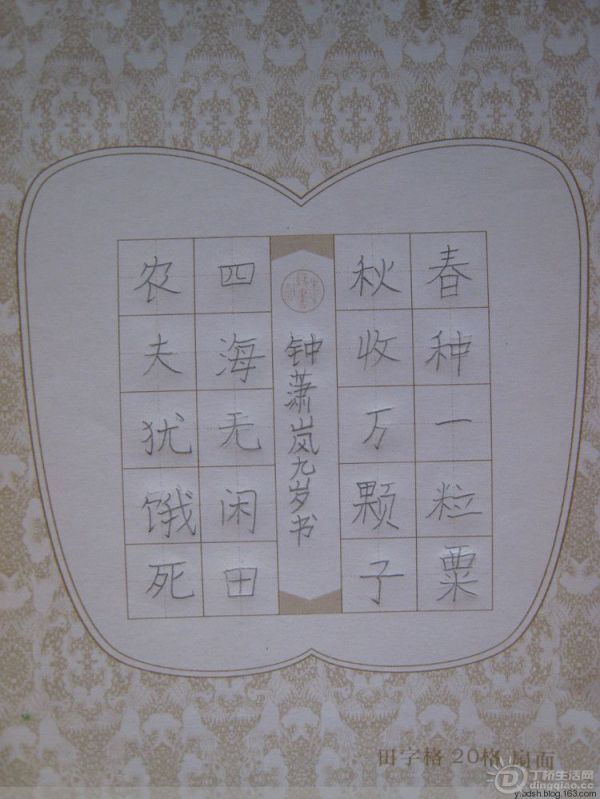 春种一粒粟
秋收万颗子
钟萧岚九岁书
四海无闲田
农夫犹饿死
田字格 20格 扇面
丁桥生活网
dingqiao.com